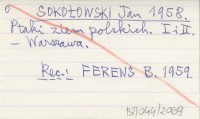 SOKOŁOWSKI Jan 1958.
Ptaki ziem polskich. I i II.
– Warszawa.
Rec.: FERENS B. 1959.